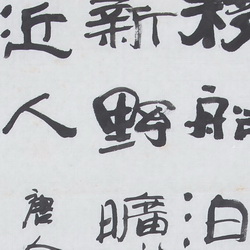 移船泊
新野曠
近人唐